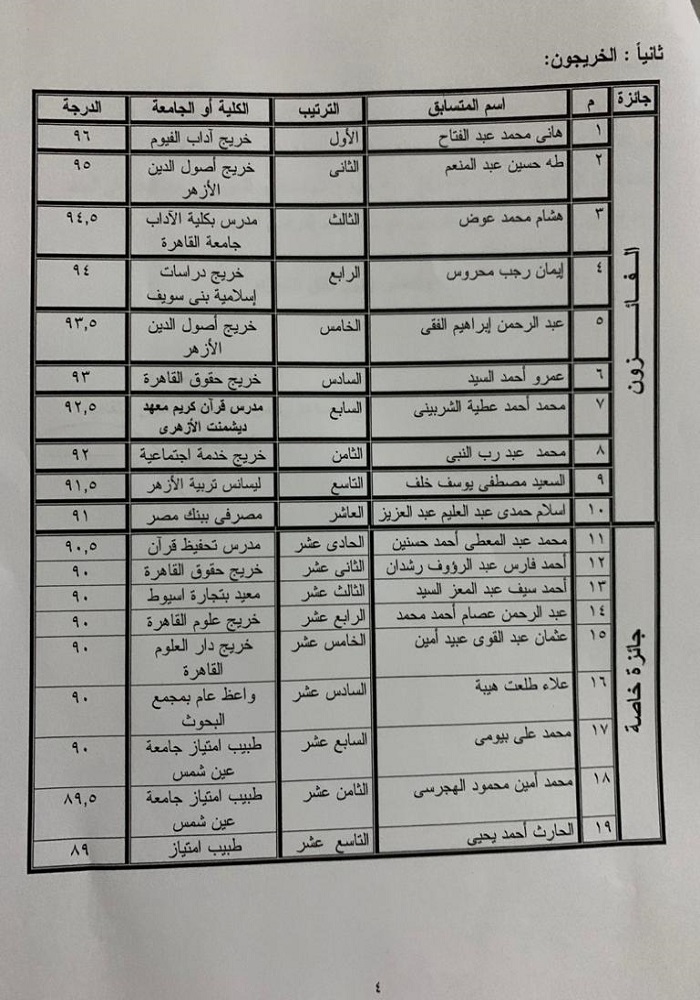 ثانياً : الخريجون:
جائزة م اسم المتسابق الترتيب الكلية أو الجامعة الدرجة
الفائزون
١ هانى محمد عبد الفتاح الأول خريج آداب الفيوم ٩٦
٢ طه حسين عبد المنعم الثانى خريج أصول الدين ٩٥
الأزهر
٣ هشام محمد عوض الثالث مدرس بكلية الآداب ٩٤,٥
جامعة القاهرة
٤ إيمان رجب محروس الرابع خريج دراسات ٩٤
إسلامية بنى سويف
٥ عبد الرحمن إبراهيم الفقى الخامس خريج أصول الدين ٩٣,٥
الأزهر
٦ عمرو أحمد السيد السادس خريج حقوق القاهرة ٩٣
٧ محمد أحمد عطية الشربينى السابع مدرس قرآن كريم معهد ٩٢,٥
ديشمنت الأزهرى
٨ محمد عبد رب النبي الثامن خريج خدمة اجتماعية ٩٢
٩ السعيد مصطفى يوسف خلف التاسع ليسانس تربية الأزهر ٩١,٥
١٠ اسلام حمدى عبد العليم عبد العزيز العاشر مصرفى ببنك مصر ٩١
جائزة خاصة
١١ محمد عبد المعطى أحمد حسنين الحادى عشر مدرس تحفيظ قرآن ٩٠,٥
١٢ أحمد فارس عبد الرؤوف رشدان الثانى عشر خريج حقوق القاهرة ٩٠
١٣ أحمد سيف عبد المعز السيد الثالث عشر معيد بتجارة اسيوط ٩٠
١٤ عبد الرحمن عصام أحمد محمد الرابع عشر خريج علوم القاهرة ٩٠
١٥ عثمان عبد القوى عبيد أمين الخامس عشر خريج دار العلوم ٩٠
القاهرة
١٦ علاء طلعت هيبة السادس عشر واعظ عام بمجمع ٩٠
البحوث
١٧ محمد على بيومى السابع عشر طبيب امتياز جامعة ٩٠
عين شمس
١٨ محمد أمين محمود الهجرسى الثامن عشر طبيب امتياز جامعة ٨٩,٥
عين شمس
١٩ الحارث أحمد يحيى التاسع عشر طبيب امتياز ٨٩
٤